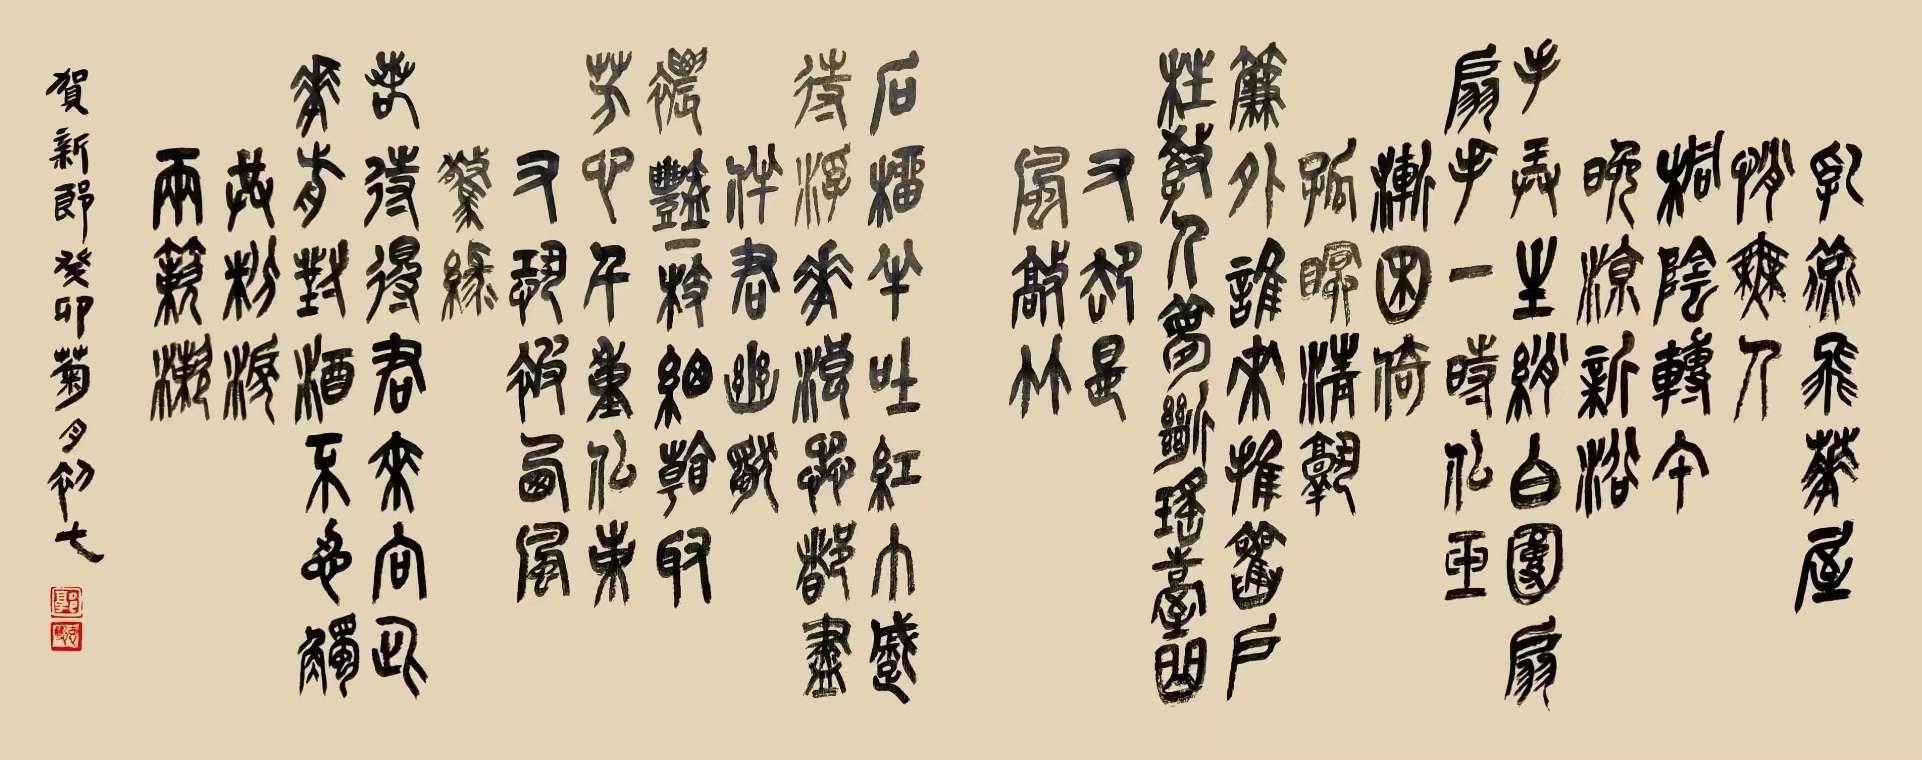 乳燕飛華屋
悄無人
桐陰轉午
晚涼新浴
手弄生綃白團扇
扇手一時似玉
漸困倚
孤眠清熟
簾外誰來推繡戶
枉教人夢斷瑤臺曲
又却是
風敲竹
石榴半吐紅巾蹙
待浮花浪蕊都盡
伴君幽獨
穠豔一枝細看取
芳心千重似束
又恐被西風
驚綠
若待得君來向此
花前對酒不忍觸
共粉淚
兩簌簌
賀新郎癸卯菊月初七
郭